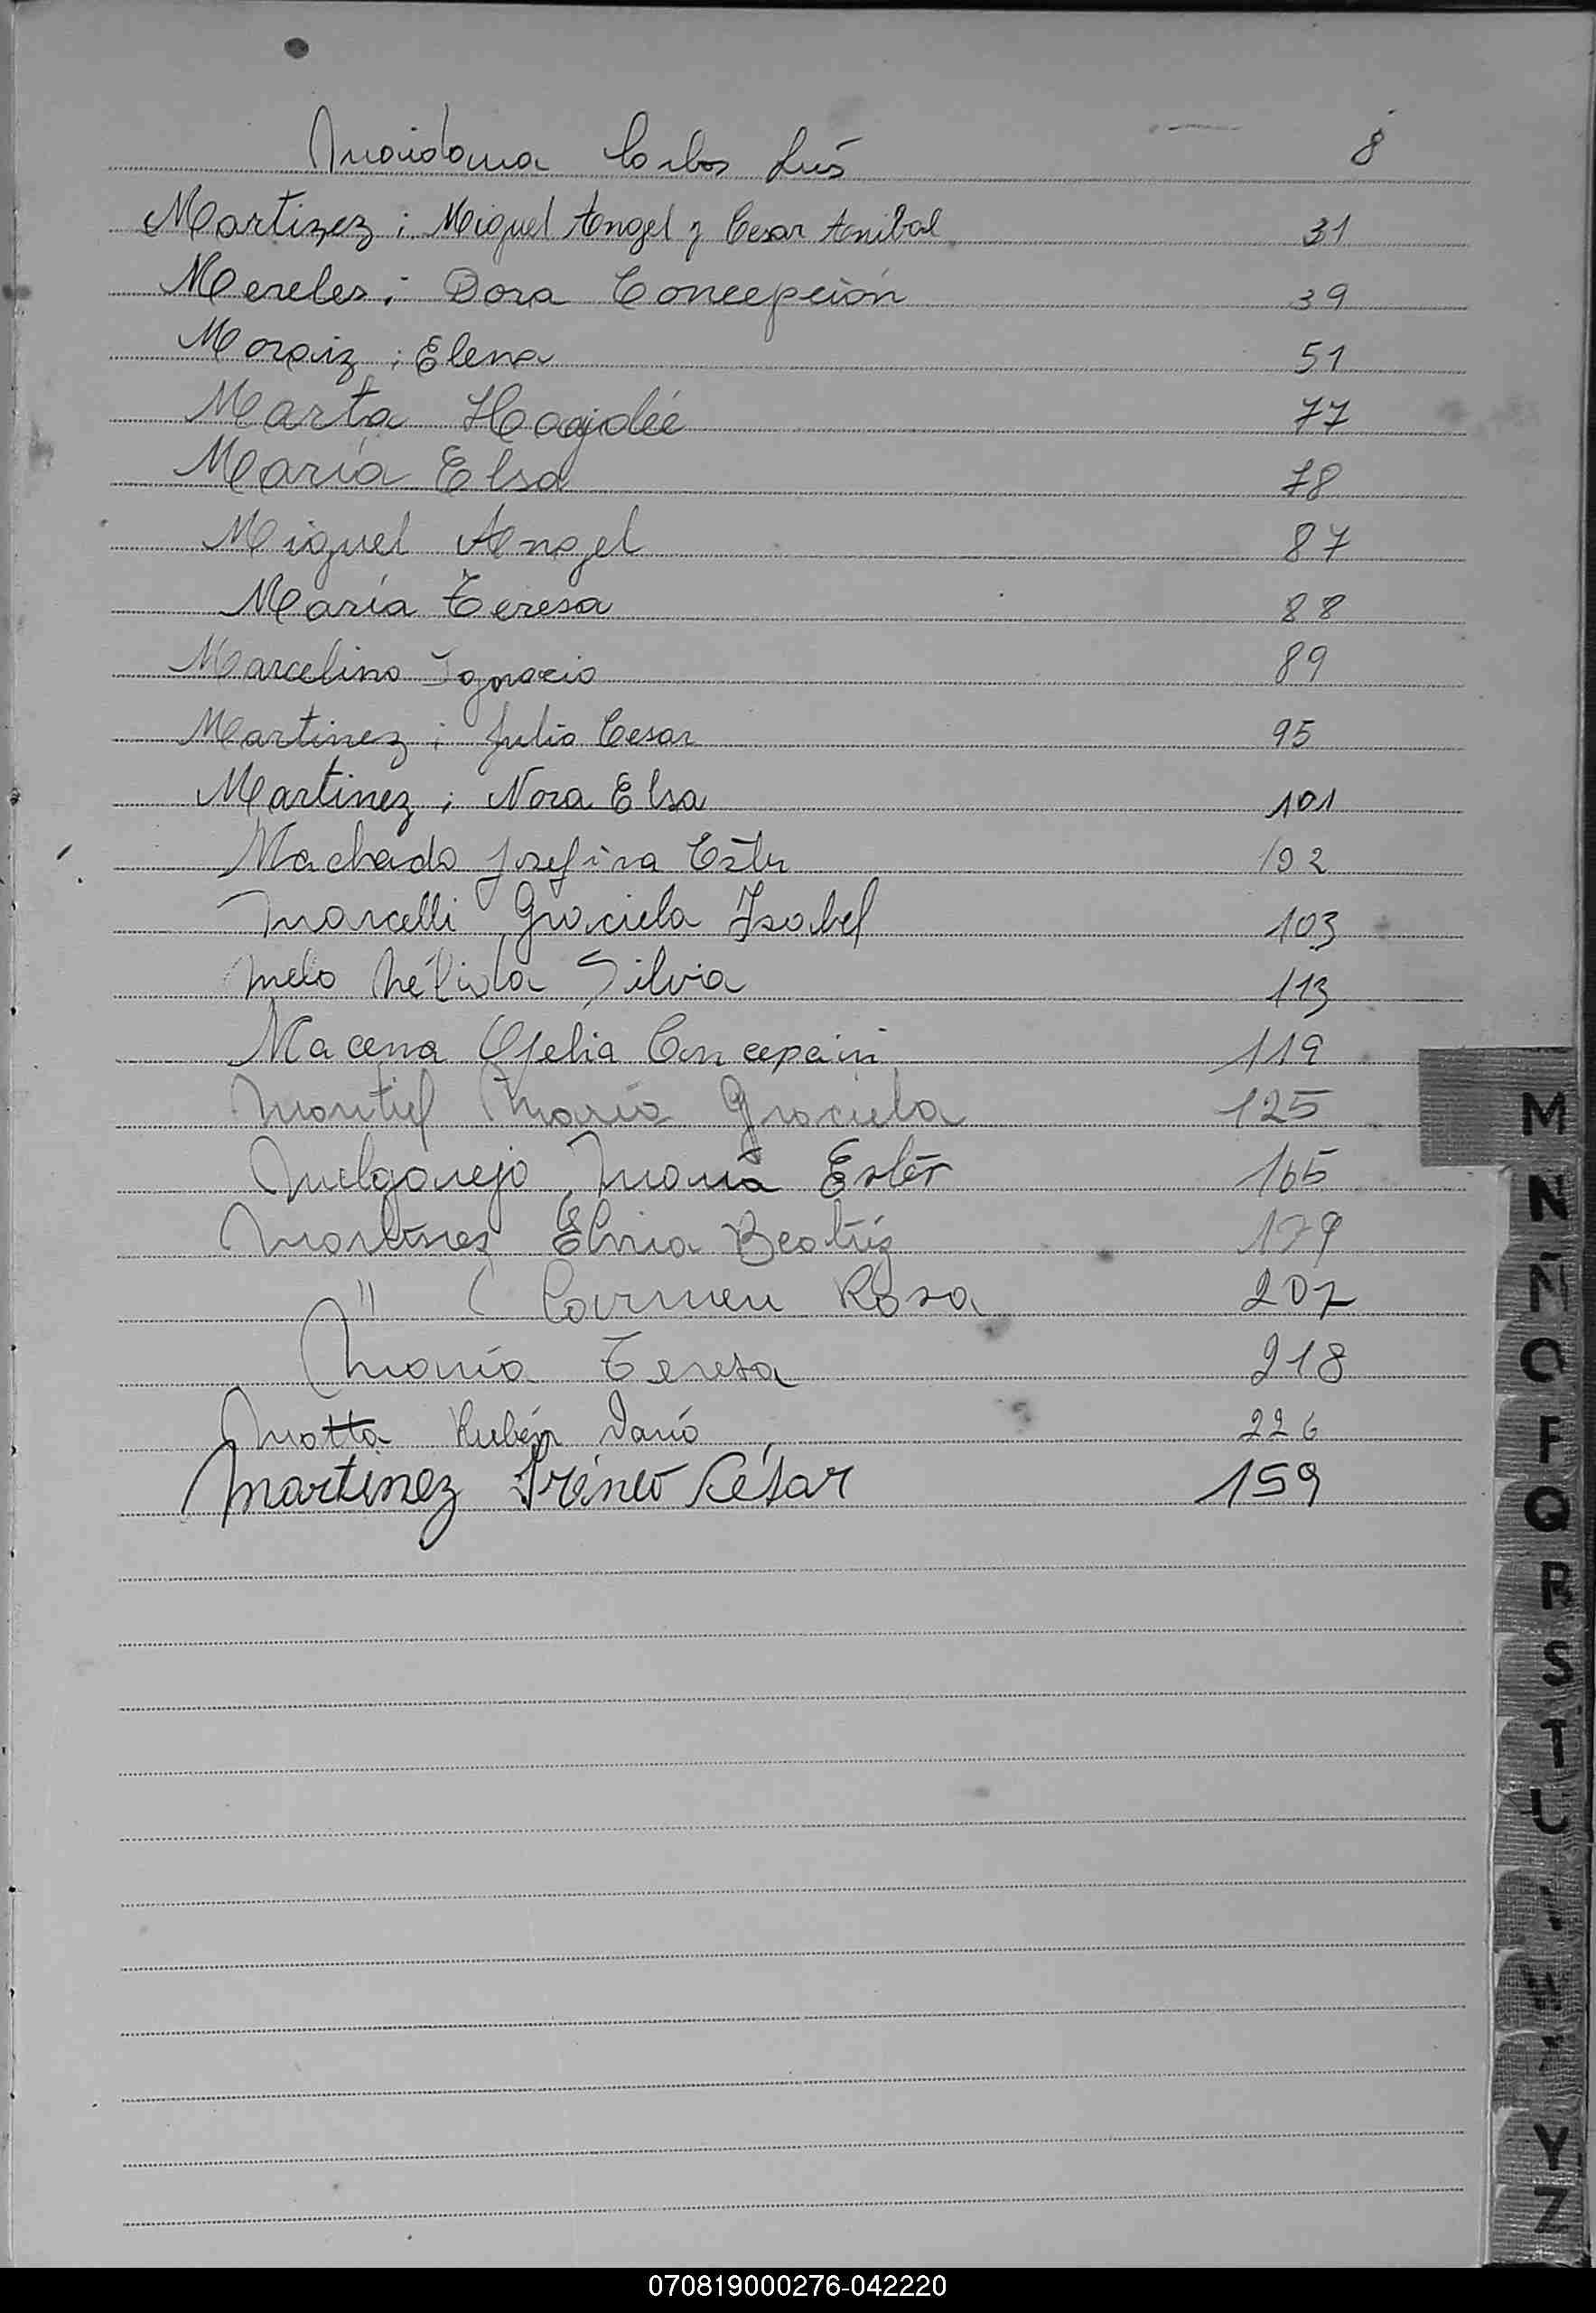 Maidana Carlos Luis 8
Martinez; Miguel Angel y Cesar Anibal 31
Mereles; Dora Concepción 39
Moraiz; Elena 51
Marta Haydée 77
María Elsa 78
Miguel Angel 87
María Teresa 88
Marcelino Ignacio 89
Martinez; Julio Cesar 95
Martinez; Nora Elsa 101
Machado Josefina Ester 102
Marcelli Graciela Isabel 103
Melo Nélida Silvia 113
Macena Ofelia Concepción 119
Montiel María Graciela 125
Melgarejo María Ester 165
Martinez Elvia Beatríz 179
" Carmen Rosa 207
María Teresa 218
Motta Rubén Darío 226
Martinez Ireneo César 159
M
N
Ñ
O
P
Q
R
S
T
U
Y
Z
070819000276-042220